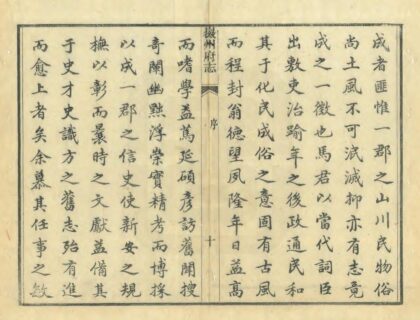 成者匪惟一郡之山川民物俗
尚土風不可泯滅抑亦有志竟
成之一徵也馬君以當代詞臣
出敷吏治踰年之後政通民和
其于化民成俗之意固有古風
而程封翁德望夙隆年日益高
徽州府志
序
十
而嗜學益篤延碩彥訪舊聞搜
奇闡幽黜浮崇實精考而博採
以成一郡之信史使新安之規
橅以彰而曩時之文獻益備其
于史才史識方之舊志殆有進
而愈上者矣余慕其任事之敏